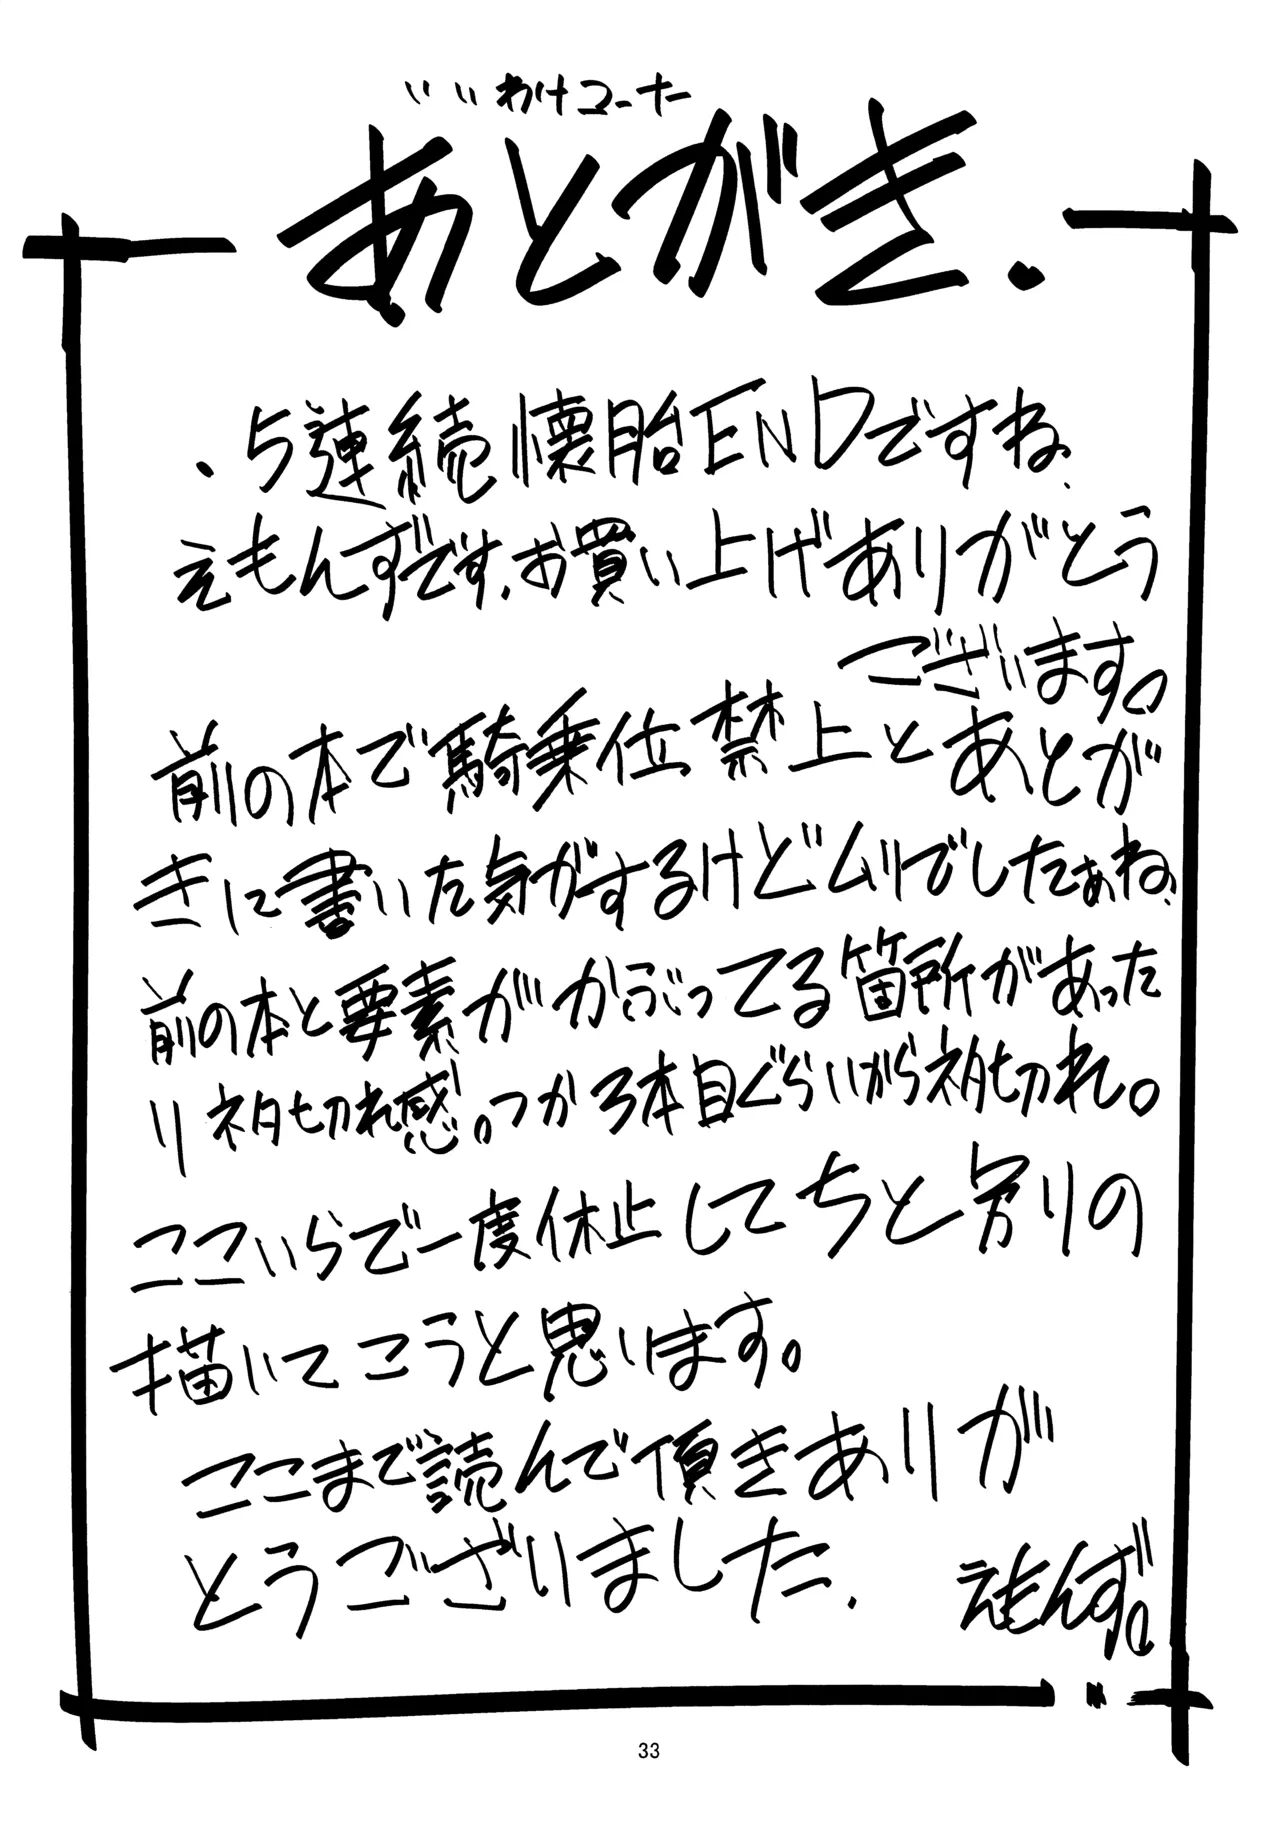 いいわけコーナー
あとがき.
・5連続懐胎ENDですね、
えもんずです、お買い上げありがとう
ございます。
前の本で騎乗位禁止とあとが
きに書いた気がするけどムリでしたぁね、
前の本と要素がかぶってる箇所があった
りネタ切れ感。つか3本目ぐらいからネタ切れ。
ここいらで一度休止してちと別りの
描いてこうと思います。
ここまで読んで頂きありが
とうございました.
えもんず。
33